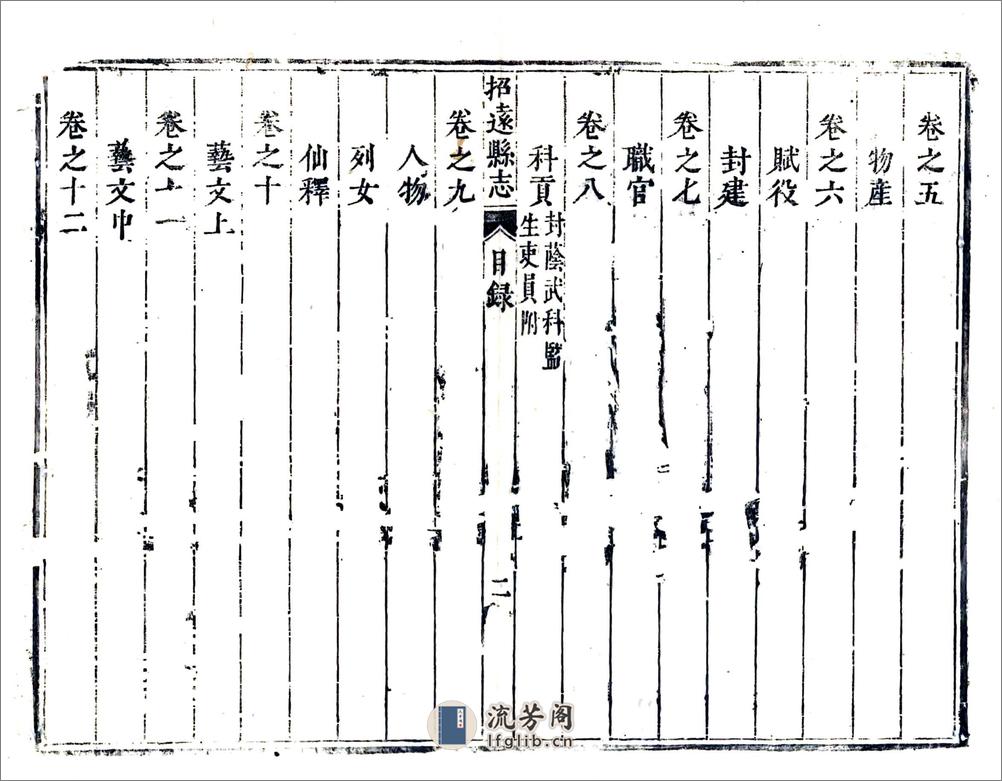 卷之五
物產
卷之六
賦役
封建
卷之七
職官
卷之八
科貢 封蔭武科監
生吏員附
招遠縣志 目錄 二
卷之九
人物
列女
仙釋
卷之十
藝文上
卷之十一
藝文中
卷之十二
流芳阁
lfglib.cn